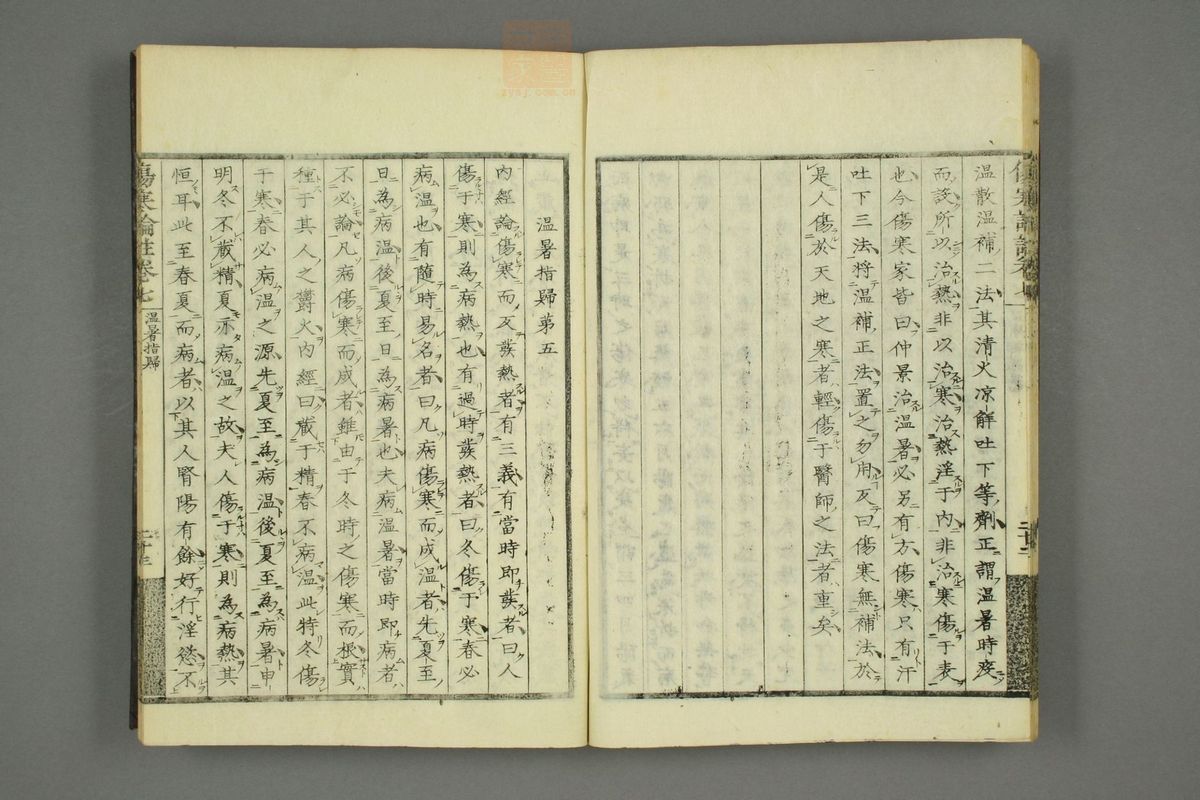 溫散溫補二法其清火凉解吐下等劑正謂溫暑時疫
而設所以治熱非以治寒治熱淫于內非治寒傷于表
也今傷寒家皆曰仲景治溫暑必另有方傷寒只有汗
吐下三法將溫補正法置之勿用反曰傷寒無補法於
是人傷於天地之寒者輕傷于醫師之法者重矣
溫暑指歸第五
內經論傷寒而反發熱者有三義有當時即發者曰人
傷于寒則為病熱也有過時發熱者曰冬傷于寒春必
病溫也有隨時易名者曰凡病傷寒而成溫者先夏至
日為病溫後夏至日為病暑也夫病溫暑當時即病者
不必論凡病傷寒而成者雖由于冬時之傷寒而根實
種于其人之欝火內經曰藏于精春不病溫此特冬傷
于寒春必病溫之源先夏至為病溫後夏至為病暑申
明冬不藏精夏亦病溫之故夫人傷于寒則為病熱其
恒耳此至春夏而病者以其人腎陽有餘好行淫慾不
傷寒論註卷七
溫暑指歸
二十三
zysj.com.cn